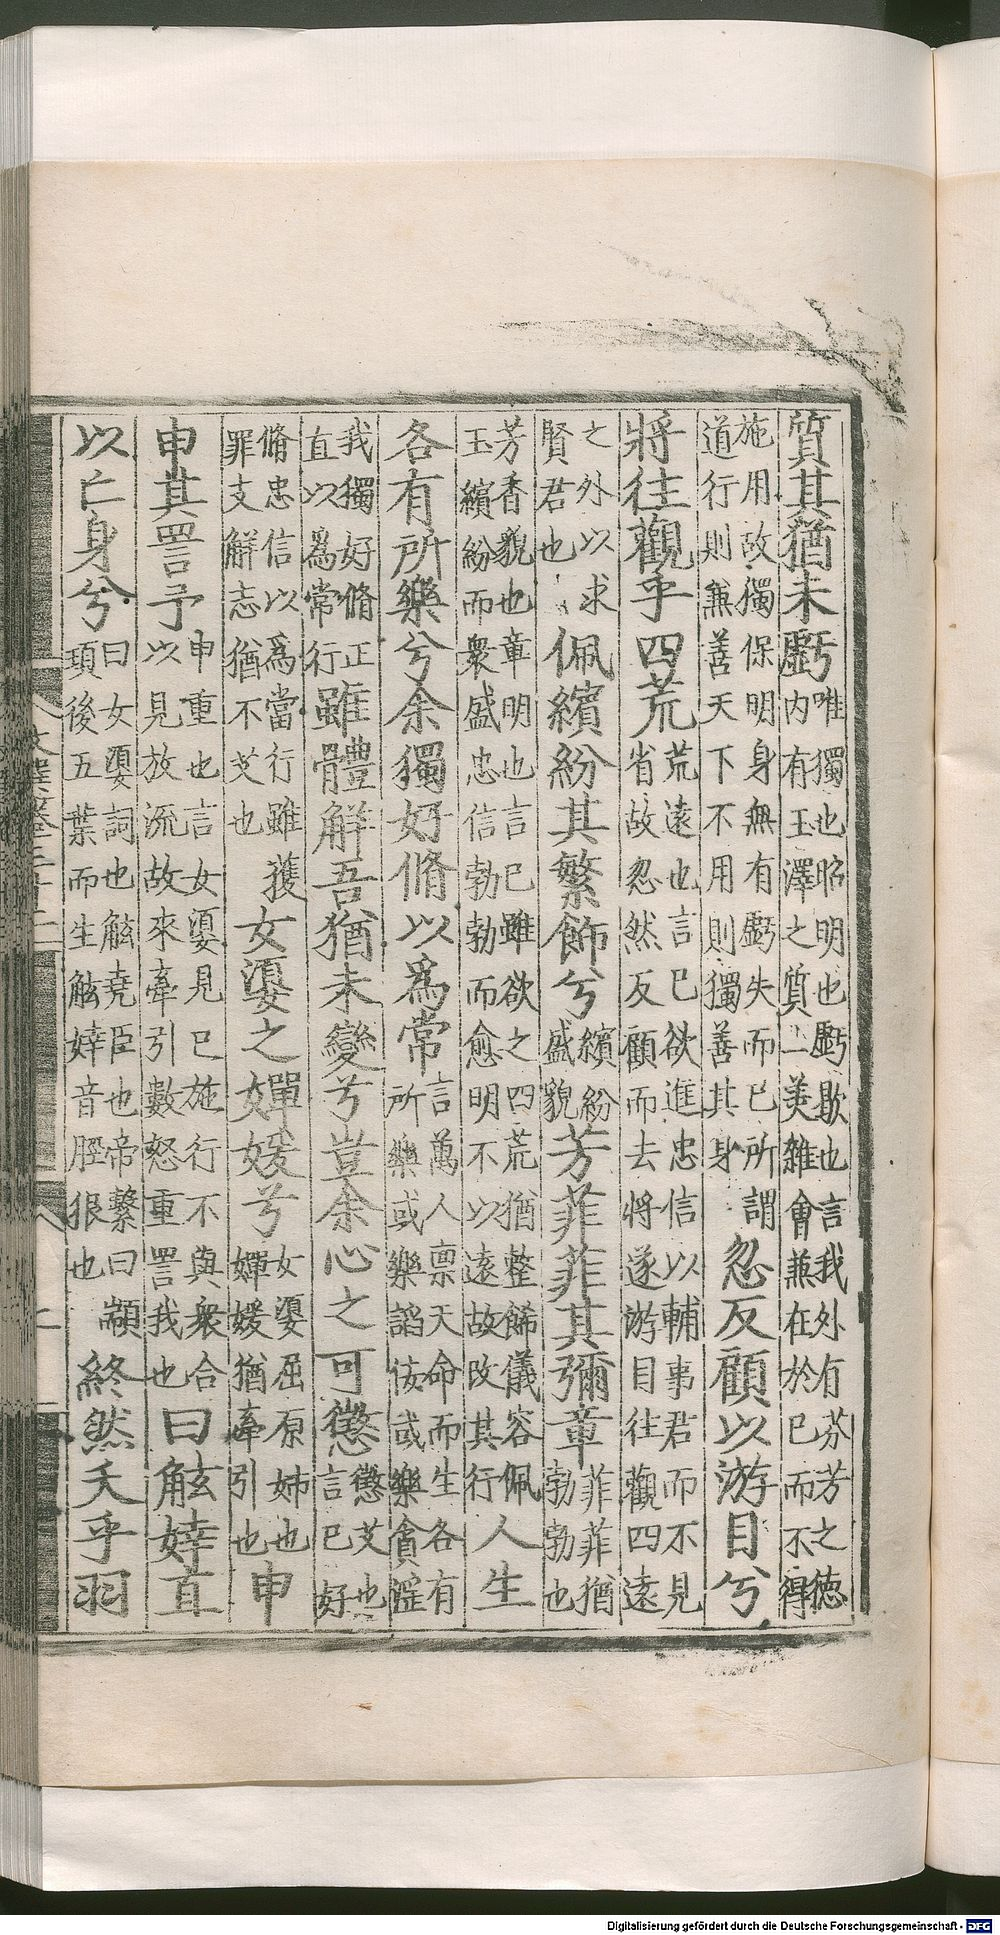 質其猶未虧唯獨也昭明也虧歇也言我外有芬芳之德內有玉澤之質二美雜會兼在於己而不得
施用故獨保明身無有虧失而已所謂道行則兼善天下不用則獨善其身忽反顧以游目兮
將往觀乎四荒荒遠也言己欲進忠信以輔事君而不見省故忽然反顧而去將遂游目往觀四遠
之外以求賢君也佩繽紛其繁飾兮繽紛盛貌芳菲菲其彌章菲菲猶勃勃也
芳香貌也章明也言己雖欲之四荒猶整飾儀容佩玉繽紛而衆盛忠信勃勃而愈明不以遠故改其行人生
各有所樂兮余獨好脩以爲常言萬人稟天命而生各有所樂或樂諂佞或樂貪淫
我獨好脩正直以爲常行雖體解吾猶未變兮豈余心之可懲懲艾也言己好
脩忠信以爲當行雖獲罪支解志猶不艾也女媭之嬋媛兮女媭屈原姊也嬋媛猶牽引也申
申其詈予申重也言女媭見己施行不與衆合以見放流故來牽引數怒重詈我也曰鮌婞直
以亡身兮曰女媭詞也鮌堯臣也帝繫曰顓頊後五葉而生鮌婞音脛狠也終然夭乎羽
Digitalisierung gefördert durch die Deutsche Forschungsgemeinschaft - DFG